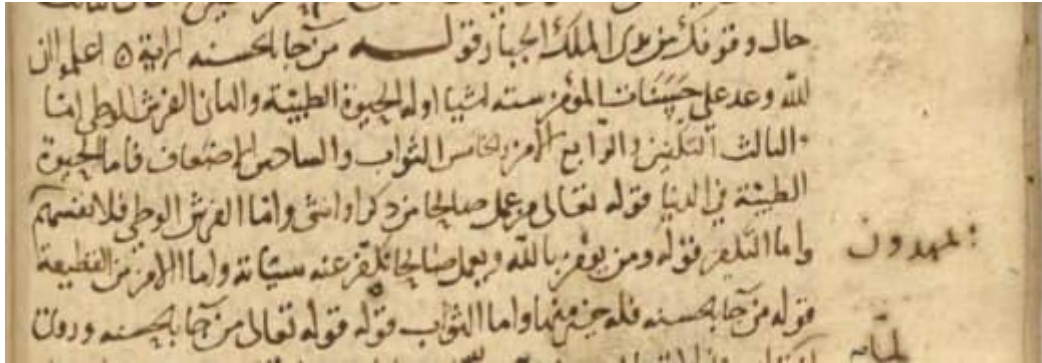 حال وقوفك بين يدي الملك الجبار قوله من جا بالحسنه الاية ٥ اعلموا ان
لله وعد على حسنات المؤمن سته اشيا اوله الحيوة الطيبة والثاني الفرش الوطي
الثالث التكفير والرابع الامن والخامس الثواب والسادس الاضعاف فاما الحيوة
الطيبة في الدنيا قوله تعالى من عمل صالحا من ذكر او انثى واما الفرش الوطي فلانفسهم
يمهدون
واما التكفير قوله ومن يؤمن بالله ويعمل صالحا يكفر عنه سيئاته واما الامن من القطيعة
قوله من جا بالحسنه فله خير منها واما الثواب قوله قوله تعالى من جا بالحسنه